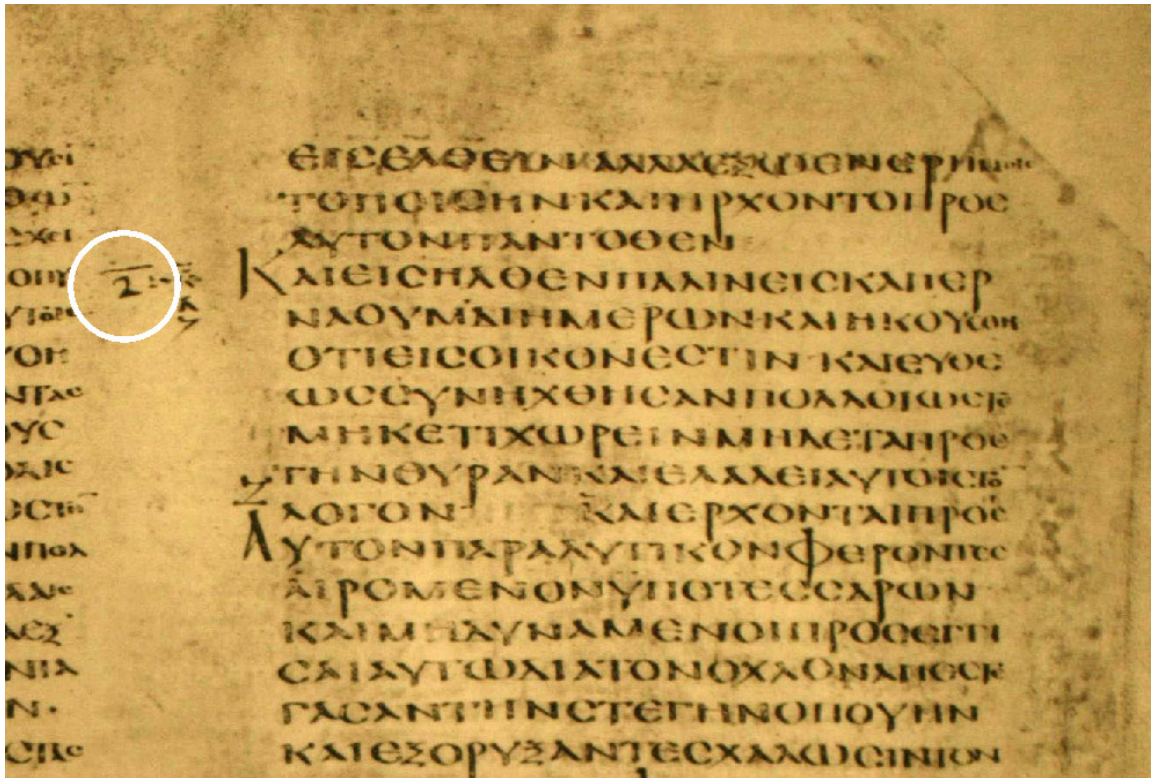 ΕΙϹΕΛΘΕΙΝΑΛΛΑΕΞΩΕΝΕΡΗΜΟΙϹ
ΤΟΠΟΙϹΗΝΚΑΙΗΡΧΟΝΤΟΠΡΟϹ
ΑΥΤΟΝΠΑΝΤΟΘΕΝ
ΚΑΙΕΙϹΗΛΘΕΝΠΑΛΙΝΕΙϹΚΑΠΕΡ
ΝΑΟΥΜΔΙΗΜΕΡΩΝ·ΚΑΙΗΚΟΥϹΘΗ
ΟΤΙΕΙϹΟΙΚΟΝΕϹΤΙΝ·ΚΑΙΕΥΘΕ
ΩϹϹΥΝΗΧΘΗϹΑΝΠΟΛΛΟΙΩϹΤΕ
ΜΗΚΕΤΙΧΩΡΕΙΝΜΗΔΕΤΑΠΡΟϹ
ΤΗΝΘΥΡΑΝΚΑΙΕΛΑΛΕΙΑΥΤΟΙϹΤΟ̅
ΛΟΓΟΝ ΚΑΙΕΡΧΟΝΤΑΙΠΡΟϹ
ΑΥΤΟΝΠΑΡΑΛΥΤΙΚΟΝΦΕΡΟΝΤΕϹ
ΑΙΡΟΜΕΝΟΝΥΠΟΤΕϹϹΑΡΩΝ
ΚΑΙΜΗΔΥΝΑΜΕΝΟΙΠΡΟϹΕΓΓΙ
ϹΑΙΑΥΤΩΔΙΑΤΟΝΟΧΛΟΝΑΠΕϹΤΕ
ΓΑϹΑΝΤΗΝϹΤΕΓΗΝΟΠΟΥΗΝ
ΚΑΙΕΞΟΡΥΞΑΝΤΕϹΧΑΛΩϹΙΝΤΟΝ